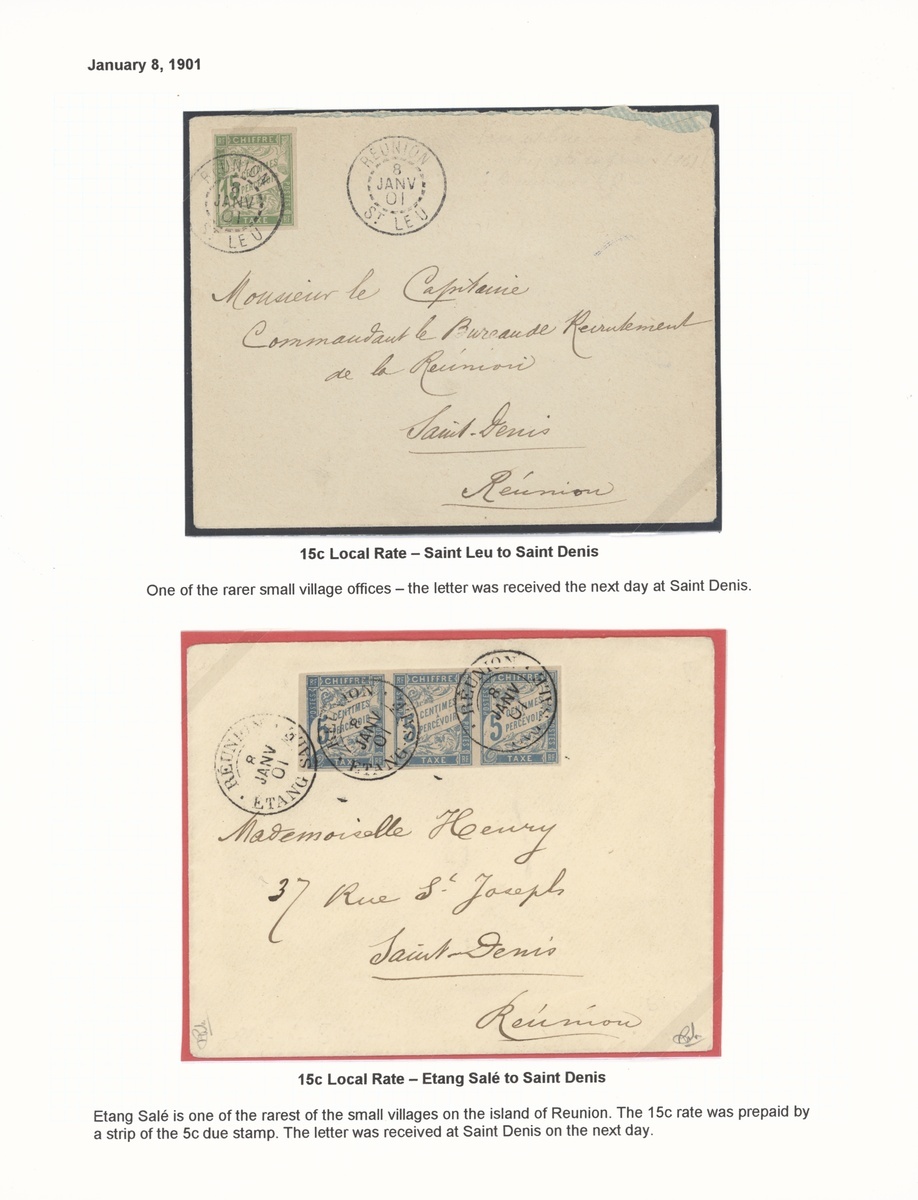 January 8, 1901
CHIFFRE
15 CENTIMES
PERCEVOIR
TAXE
RÉUNION
8
JANV
01
ST LEU
RÉUNION
8
JANV
01
ST LEU
Monsieur le Capitaine
Commandant le Bureau de Recrutement
de la Réunion
Saint-Denis
Réunion
15c Local Rate – Saint Leu to Saint Denis
One of the rarer small village offices – the letter was received the next day at Saint Denis.
CHIFFRE CHIFFRE CHIFFRE
5 CENTIMES 5 CENTIMES 5 CENTIMES
PERCEVOIR PERCEVOIR PERCEVOIR
TAXE TAXE TAXE
RÉUNION
8
JANV
01
ETANG SALÉ
RÉUNION
8
JANV
01
ETANG SALÉ
RÉUNION
8
JANV
01
ETANG SALÉ
Mademoiselle Henry
37 Rue St Joseph
Saint-Denis
Réunion
15c Local Rate – Etang Salé to Saint Denis
Etang Salé is one of the rarest of the small villages on the island of Reunion. The 15c rate was prepaid by
a strip of the 5c due stamp. The letter was received at Saint Denis on the next day.